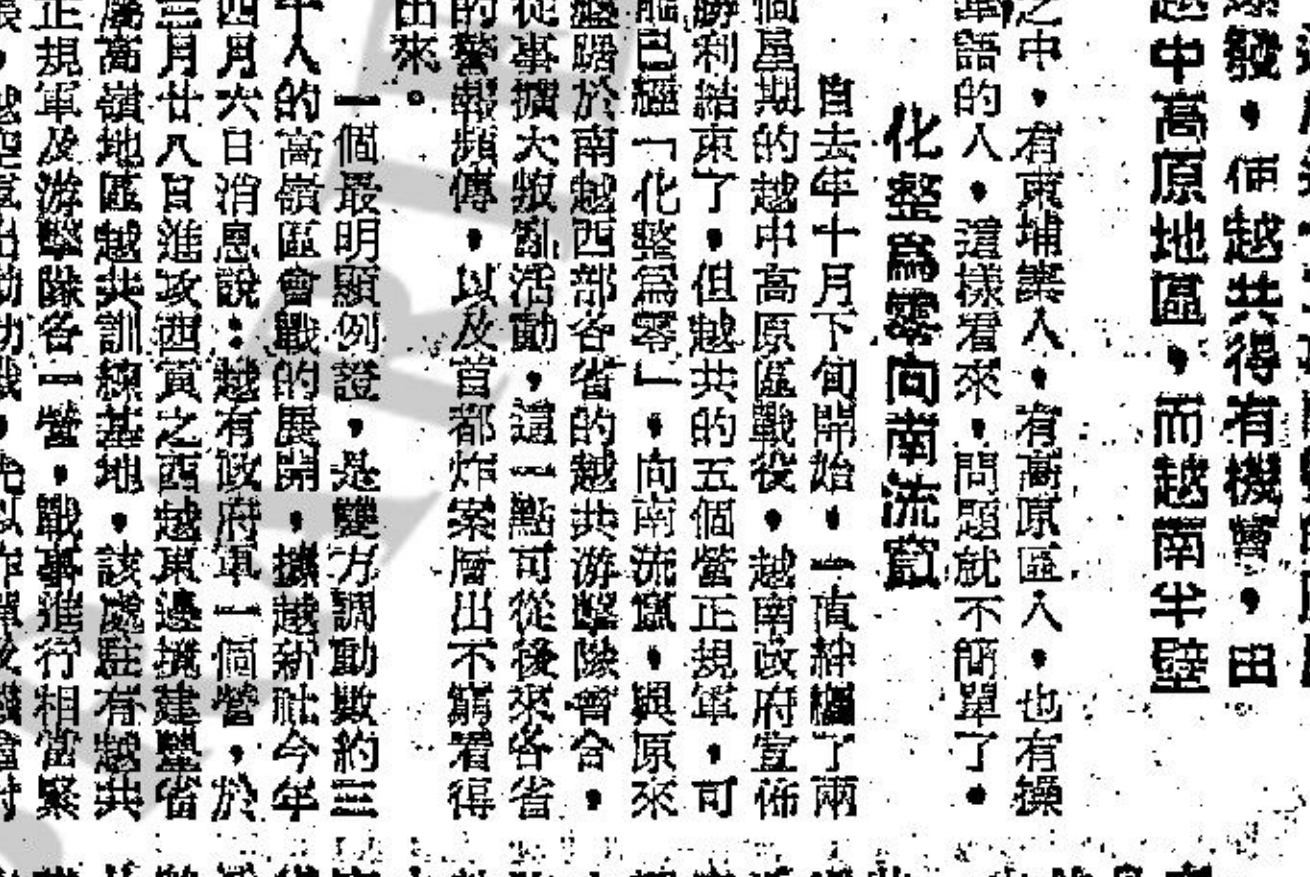 爆發，使越共得有機會，由
越中高原地區，而越南半壁
之中，有柬埔寨人，有高原區人，也有操
單語的人，這樣看來，問題就不簡單了。
化整爲零向南流竄
自去年十月下旬開始，一直紳纏了兩
個星期的越中高原區戰役，越南政府宣佈
勝利結束了，但越共的五個營正規軍，可
能已經「化整爲零」，向南流竄，與原來
盤踞於南越西部各省的越共游擊隊會合，
從事擴大叛亂活動，這一點可從後來各省
的警報頻傳，以及首都炸案層出不窮看得
出來。
一個最明顯例證，是雙方調動數約三
千人的高嶺區會戰的展開，據越新社今年
四月六日消息說：越有政府軍一個營，於
三月廿八日進攻西寅之西越柬邊境建豐省
屬高嶺地區越共訓練基地，該處駐有越共
正規軍及游擊隊各一營，戰事進行相當緊